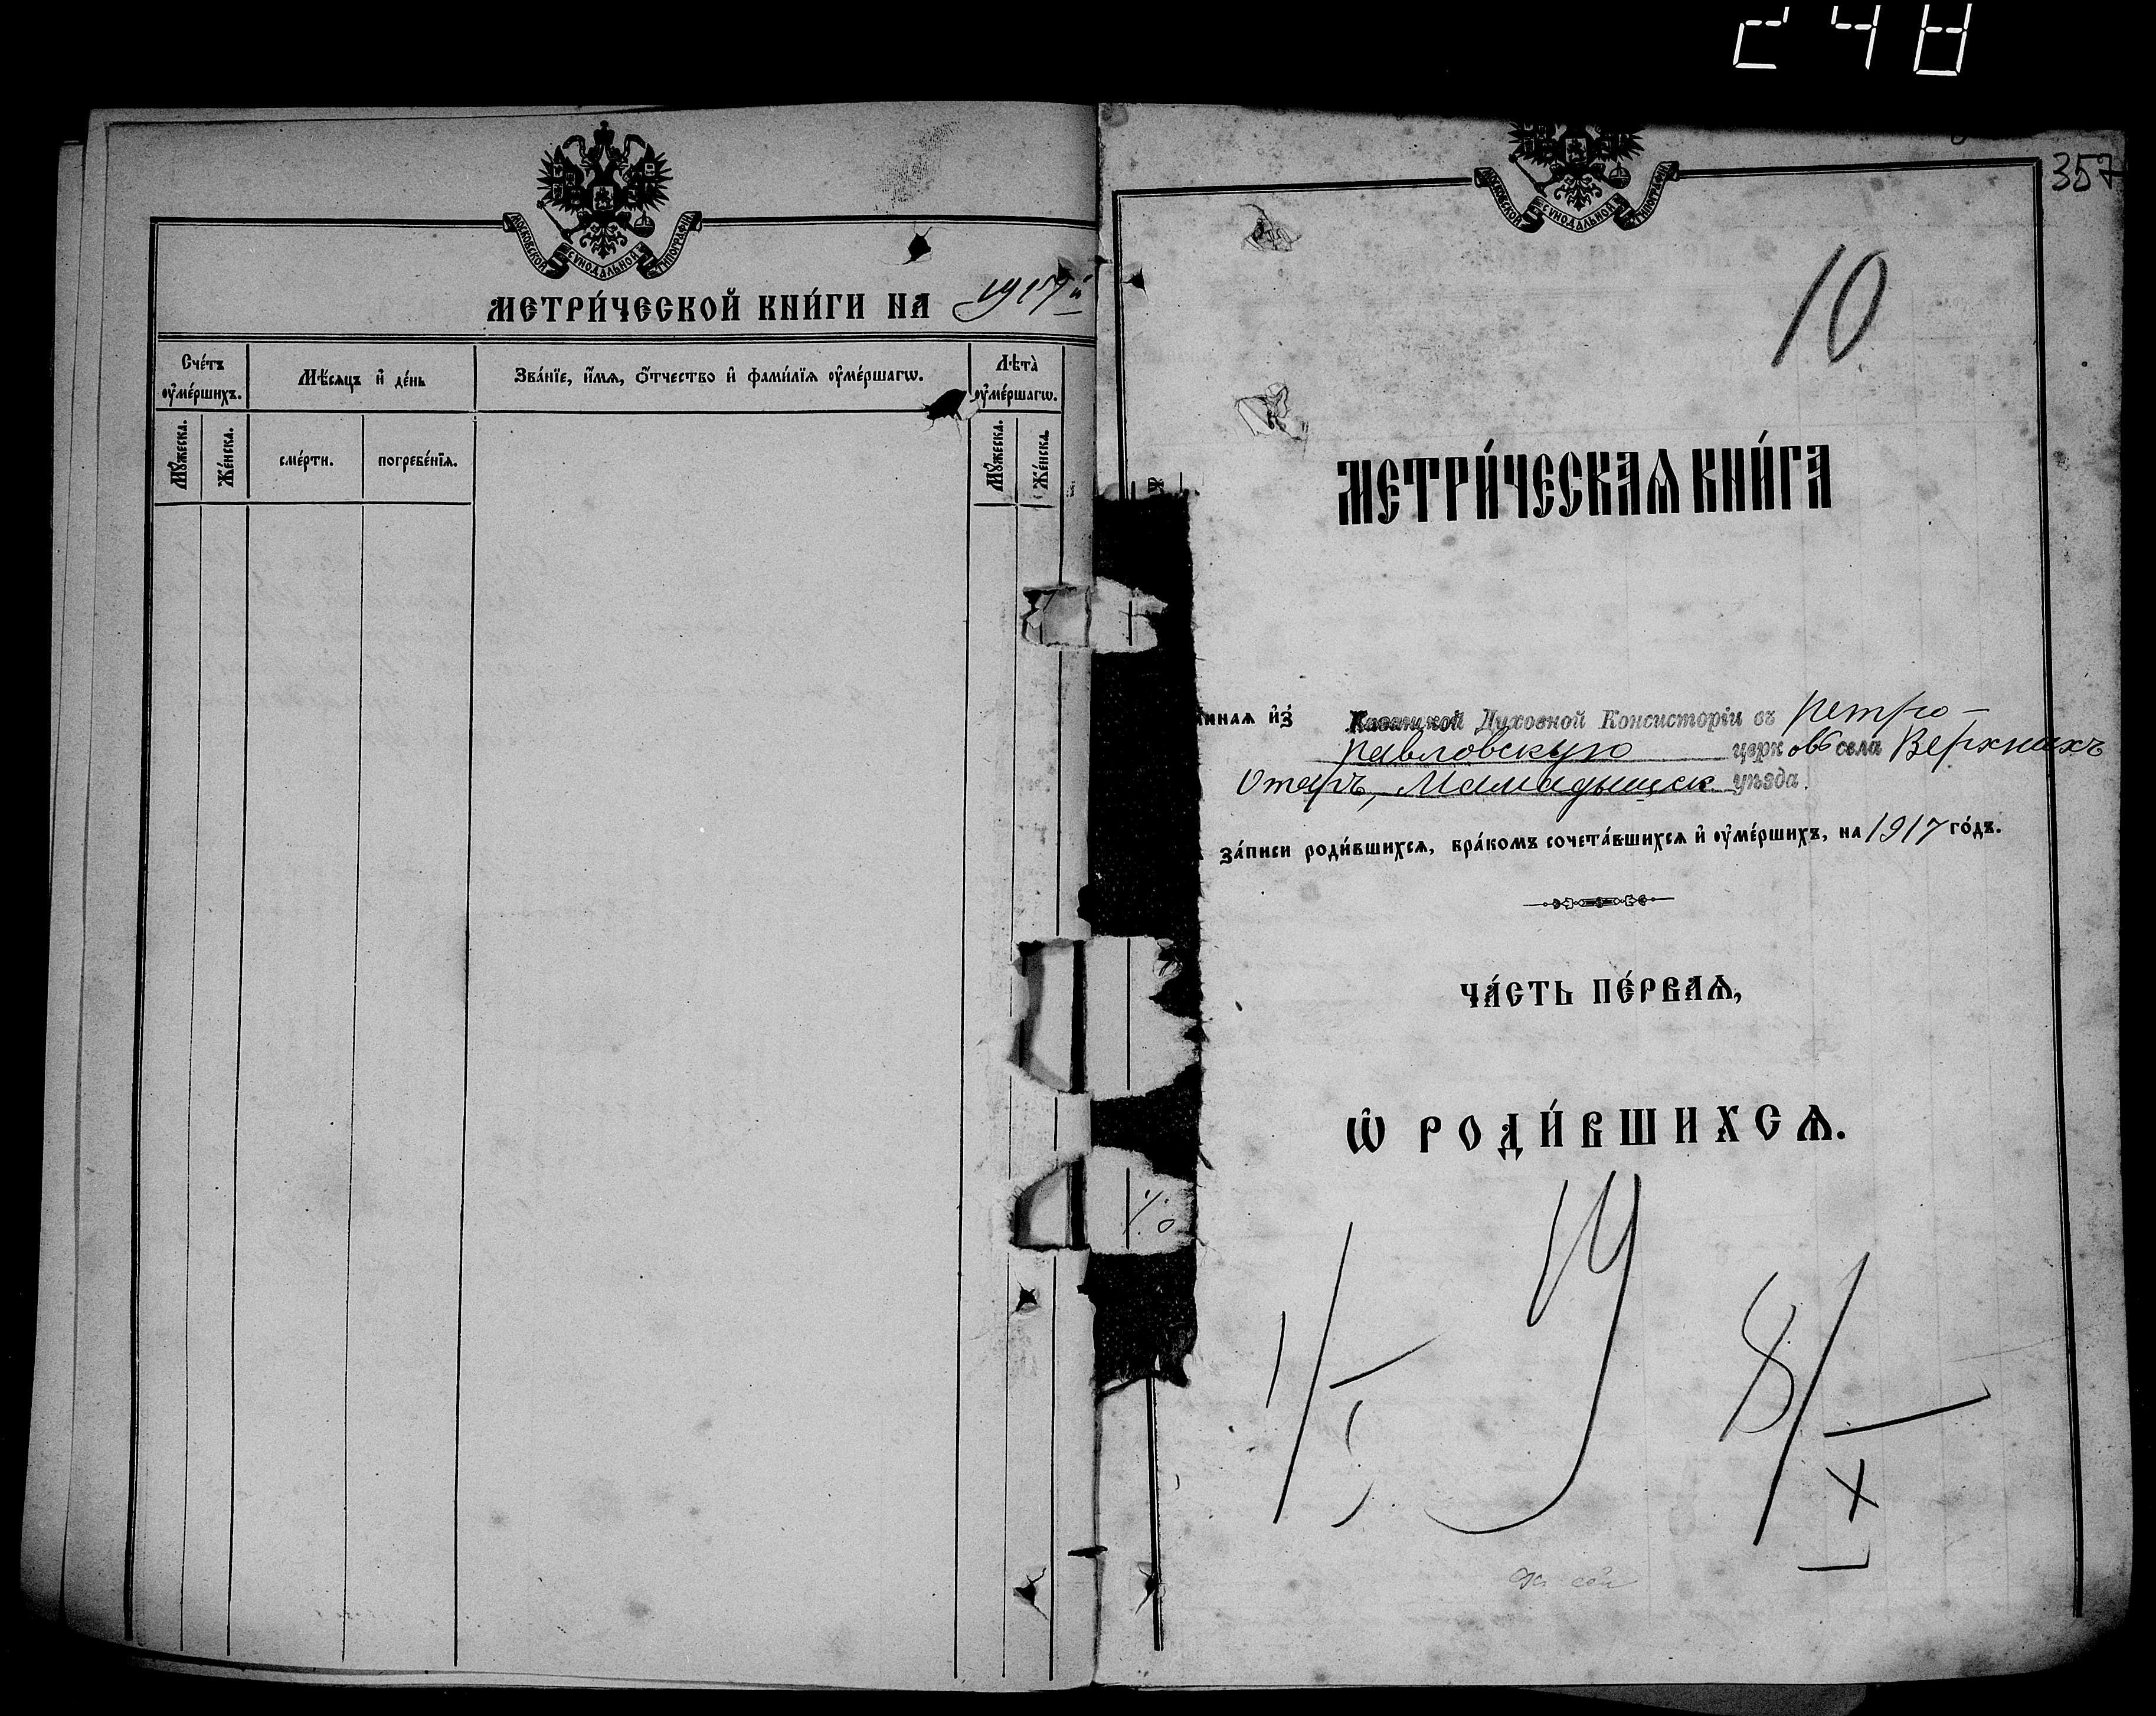 248
МОСКОВСКОЙ СѴНОДАЛЬНОЙ ТИПОГРАФІИ
МЕТРИ́ЧЕСКОЙ КНИ́ГИ НА 1917й
Сче́тъ ᲂу҆ме́ршихъ.
Мѣ́сяцъ и҆ де́нь
Зва́нїе, и҆́мѧ, ѻ҆́тчество и҆ фами́лїѧ ᲂу҆ме́ршагѡ.
Лѣта̀ ᲂу҆ме́ршагѡ.
Мꙋ́жеска.
Же́нска.
сме́рти.
погребе́нїѧ.
Мꙋ́жеска.
Же́нска.
357
МОСКОВСКОЙ СѴНОДАЛЬНОЙ ТИПОГРАФІИ
10
МЕТРИ́ЧЕСКАѦ КНИ́ГА
ннаѧ и҆з̾ Казанской Духовной Консисторіи въ Петро-
павловскую церковь села Верхнихъ
Отаръ, Мамадышск. уѣзда.
за́писи роди́вшихсѧ, бра́комъ сочета́вшихсѧ и҆ ᲂу҆ме́ршихъ, на 1917 го́дъ.
ЧА́СТЬ ПЕ́РВАѦ,
Ѡ҆ РОДИ́ВШИХСѦ.